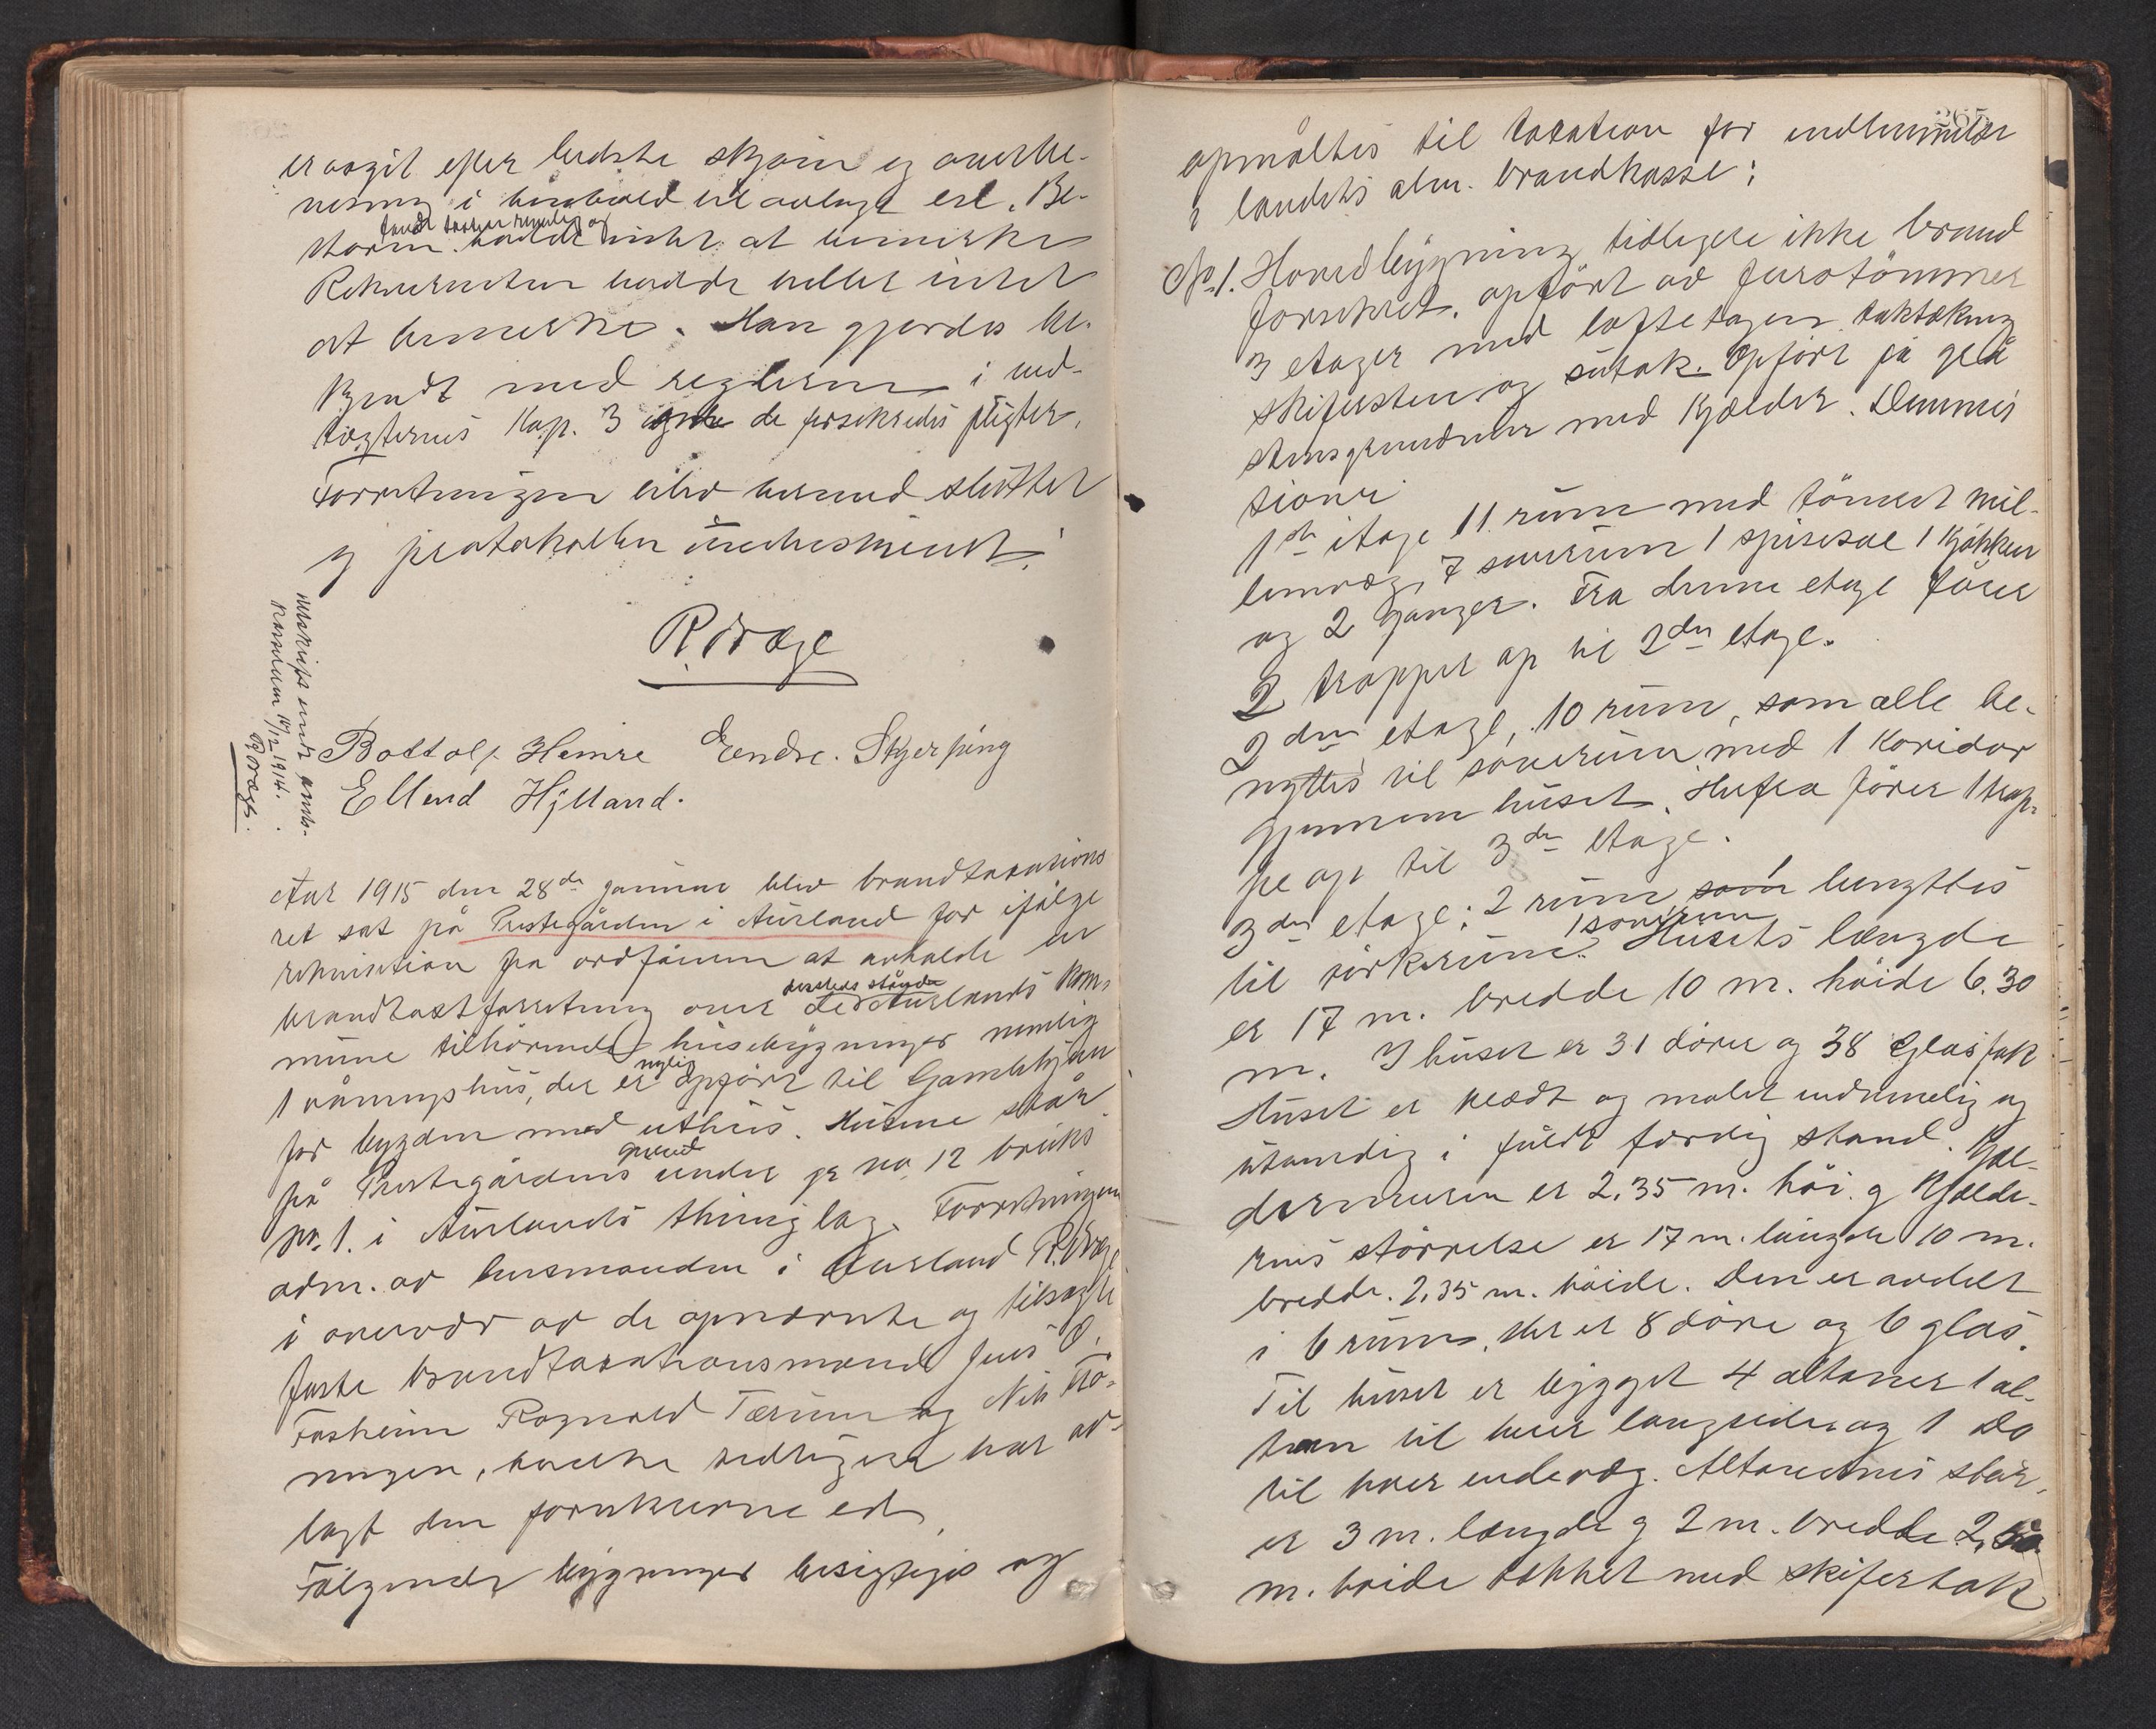 er avgit efter bedste skjøn og overbe-
visning i henhold til avlagt ed. Be-
styreren hadde intet at bemerke
Rekvirenten hadde heller intet
at bemerke. Han gjordes be-
kjendt med reglerne i ved-
tægternes Kap. 3 de forsikredes pligter.
Forretningen blev hermed sluttet
og protokollen underskrevet.
R. Dræge
Bottolf Hemre Endre. Skjerping
Ellend Hylland.
utskrift sendt amts-
kassereren 16/12 1914.
R Drægs.
Aar 1915 den 28de januar blev brandtaxations
ret sat på Prestegården i Aurland for ifølge
rekvisition fra ordføreren at avholde en
brandtaxtforretning over Aurlands kom-
mune tilhørende husebygninger nemlig
1 våningshus, der er nylig opført til Gamlehjem
for bygden med uthus. Husene står
på Prestegårdens grund under gr no 12 bruks
no. 1. i Aurlands thinglag. Forretningen
adm. av lensmanden i Aurland R. Dræge
i overvær av de opnævnte og tilsagte
faste brandtaxationsmænd Jens O.
Fosheim Ragnvald Tærum og Nils Frø-
ningen, hvilke tidligere har av-
lagt den fornødne ed
Følgende bygninger besigtiges og
265
opmåltes til taxation for indlemmelse
i landets alm. brandkasse:
No. 1. Hovedbygning tidligere ikke brand
forsikret, opført av furotømmer
3 etager med loftetagen. taktækning
skifersten og sutak. Opført på grå
stensgrundmur med Kjælder. Dimmen
sioner
1ste etage 11 rum med tømret mel-
lemvæg, 7 soverum 1 spisesal 1 Kjøkken
og 2 ganger. Fra denne etage fører
2 trapper op til 2den etage.
2den etage, 10 rum, som alle be-
nyttes til soverum med 1 Koridor
gjennem huset. Herfra fører 1 trap-
pe op til 3de etage.
3de etage: 2 rum som benyttes
1 soverum
til rørkrum. Husets længde
er 17 m. bredde 10 m. høide 6.30
m. I huset er 31 dører og 38 Glas fak
Huset er klædt og malet indvendig og
utvendig i fuldt færdig stand. Kjæl-
dermuren er 2.35 m. høi. og Kjælde-
rens størrelse er 17 m. længde 10 m.
bredde. 2.35 m. høide. Den er avdelt
i 6 rum. der er 8 døre og 6 glas.
Til huset er bygget 4 altaner 1 al-
tan til hver langside og 1 do
til hver endevæg. Altanernes stør.
er 3 m. længde og 2 m. bredde
m. høide tækket med skifertak